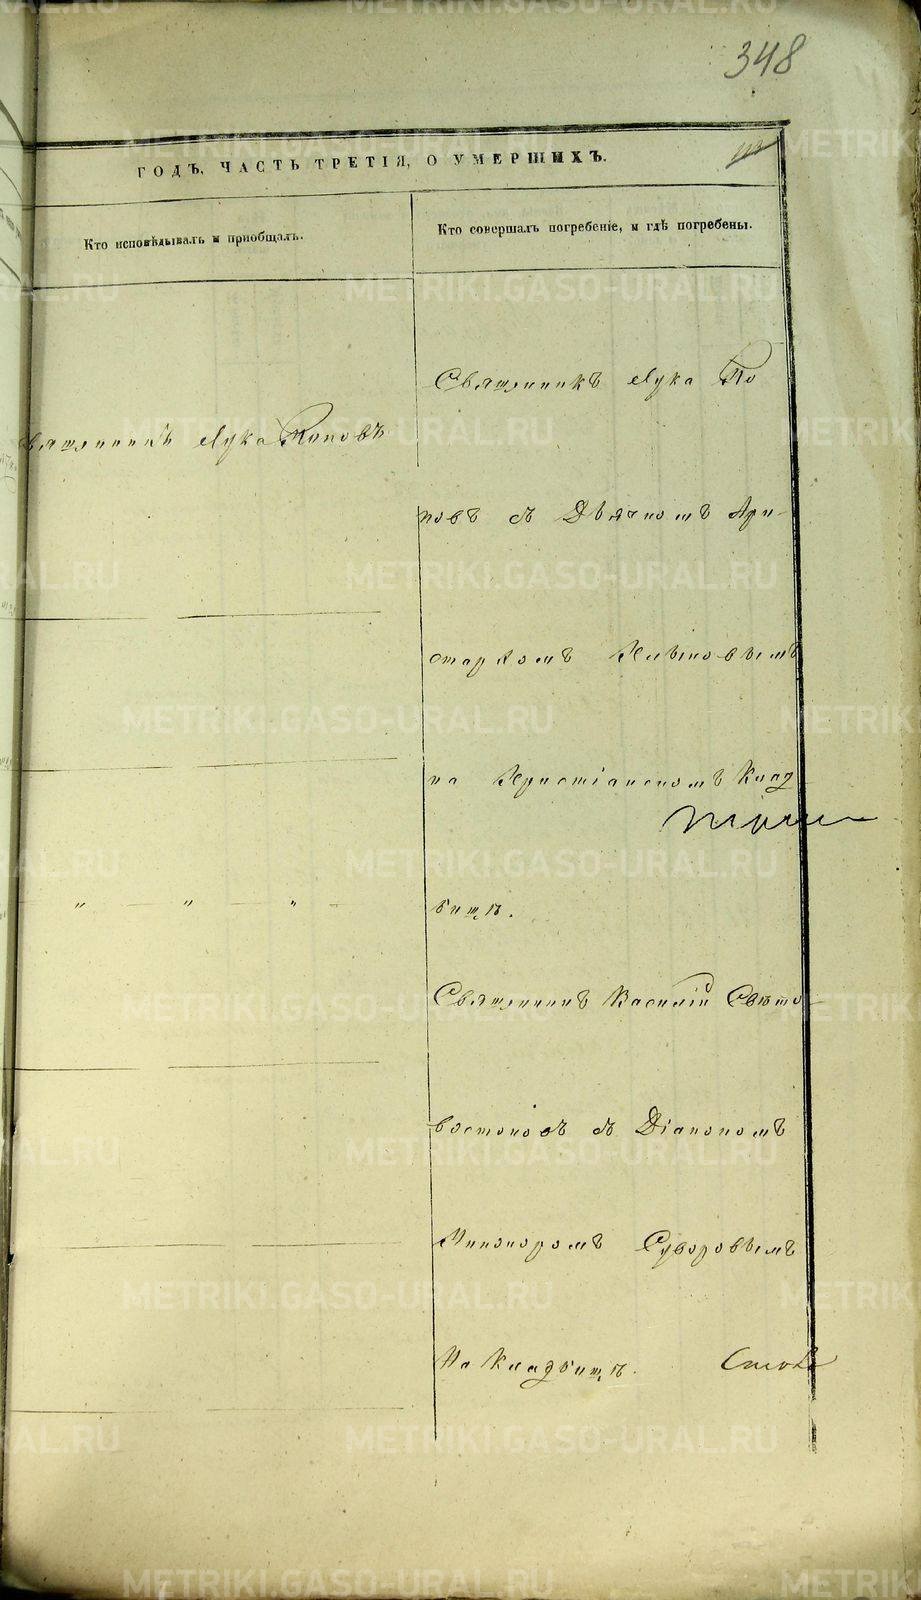 348
ГОДЪ, ЧАСТЬ ТРЕТІЯ, О УМЕРШИХЪ.
Кто исповѣдывалъ и пріобщалъ.
Кто совершалъ погребеніе, и гдѣ погребены.
вященникъ Лука Поповъ
Священникъ Лука По
повъ съ Дьячкомъ Ари-
стархомъ
на Христіанскомъ Клад
бищѣ.
Священникъ Василій Свѣто-
востоковъ съ Діакономъ
Никоноромъ Суворовымъ
На Кладбищѣ.
METRIKI.GASO-URAL.RU